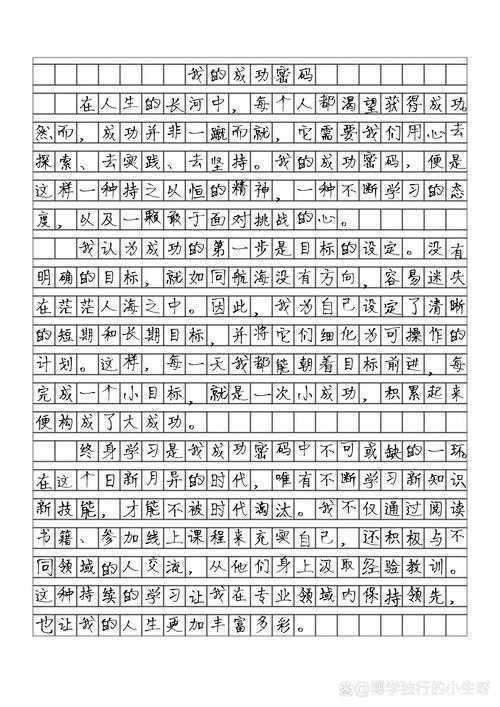 我的成功密码
在人生的长河中，每个人都渴望获得成功。
然而，成功并非一蹴而就，它需要我们用心去
探索、去实践、去坚持。我的成功密码，便是
这样一种持之以恒的精神，一种不断学习的态
度，以及一颗敢于面对挑战的心。
我认为成功的第一步是目标的设定。没有
明确的目标，就如同航海没有方向，容易迷失
在茫茫人海之中。因此，我为自己设定了清晰
的短期和长期目标，并将它们细化为可操作的
计划。这样，每一天我都能朝着目标前进，每
完成一个小目标，就是一次小成功，积累起来
便构成了大成功。
终身学习是我成功密码中不可或缺的一环。
在这个日新月异的时代，唯有不断学习新知识
新技能，才能不被时代淘汰。我不仅通过阅读
书籍、参加线上课程来充实自己，还积极与不
同领域的人交流，从他们身上汲取经验教训。
这种持续的学习让我在专业领域内保持领先，
也让我的人生更加丰富多彩。
@博学独行的小生呀